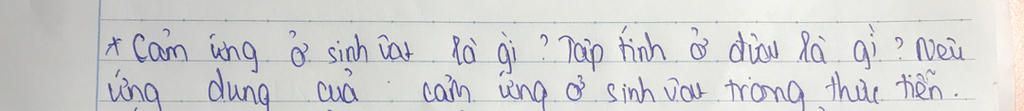 * Cảm ứng ở sinh vật là gì? Tập tính ở đvật là gì? Nêu
ứng dụng của cảm ứng ở sinh vật trong thực tiễn.